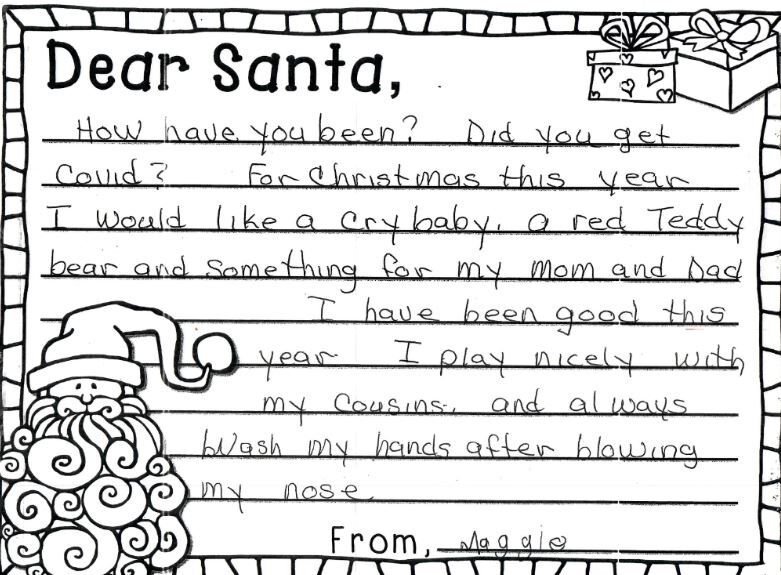 Dear Santa,
How have you been? Did you get
Covid? For Christmas this year
I would like a cry baby, a red Teddy
bear and something for my mom and Dad
I have been good this
year I play nicely with
my cousins, and always
Wash my hands after blowing
my nose
From, Maggie